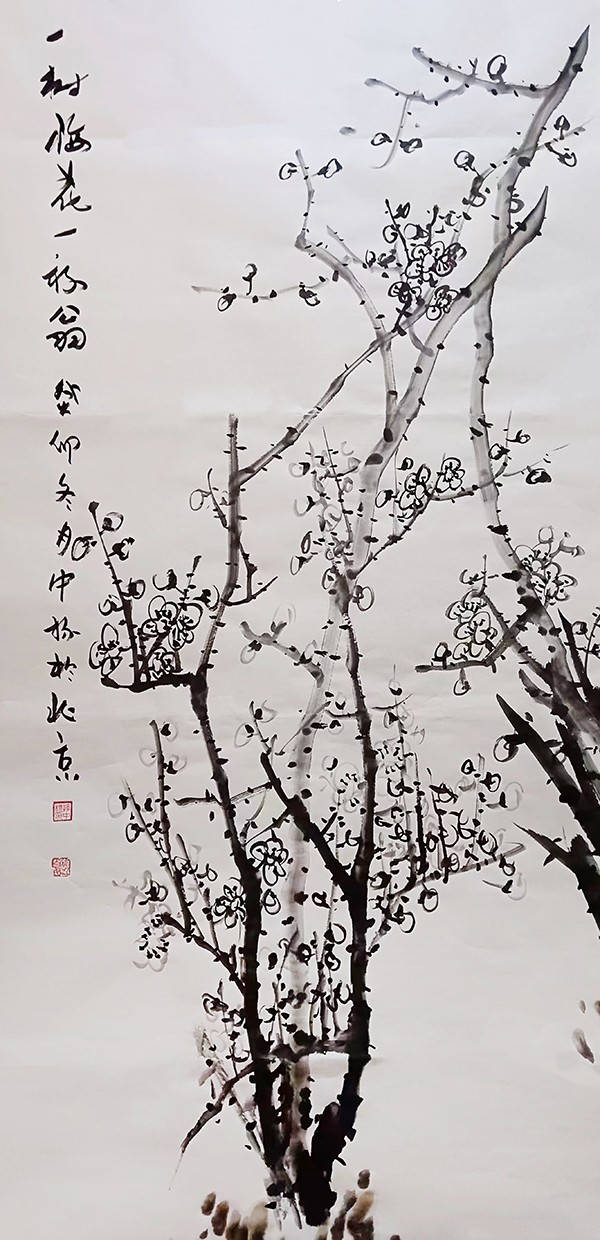 一树梅花一放翁 癸卯冬月中於北京